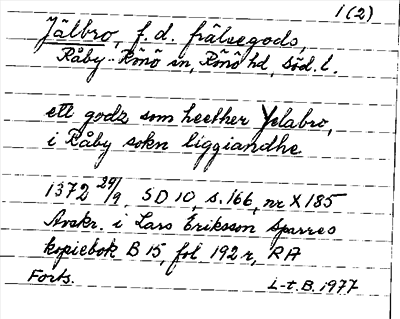 1(2)
Jälbro, f.d. frälsegods,
Råby-Rönö sn, Rönö hd, Söd. l.
ett godz som heether Jelabro,
i Råby sokn liggiandhe
1372 29/9, SD 10, s. 166, nr X 185
Avskr. i Lars Eriksson Sparres
kopiebok B 15, fol 192 r, RA
Forts. L-t. B. 1977